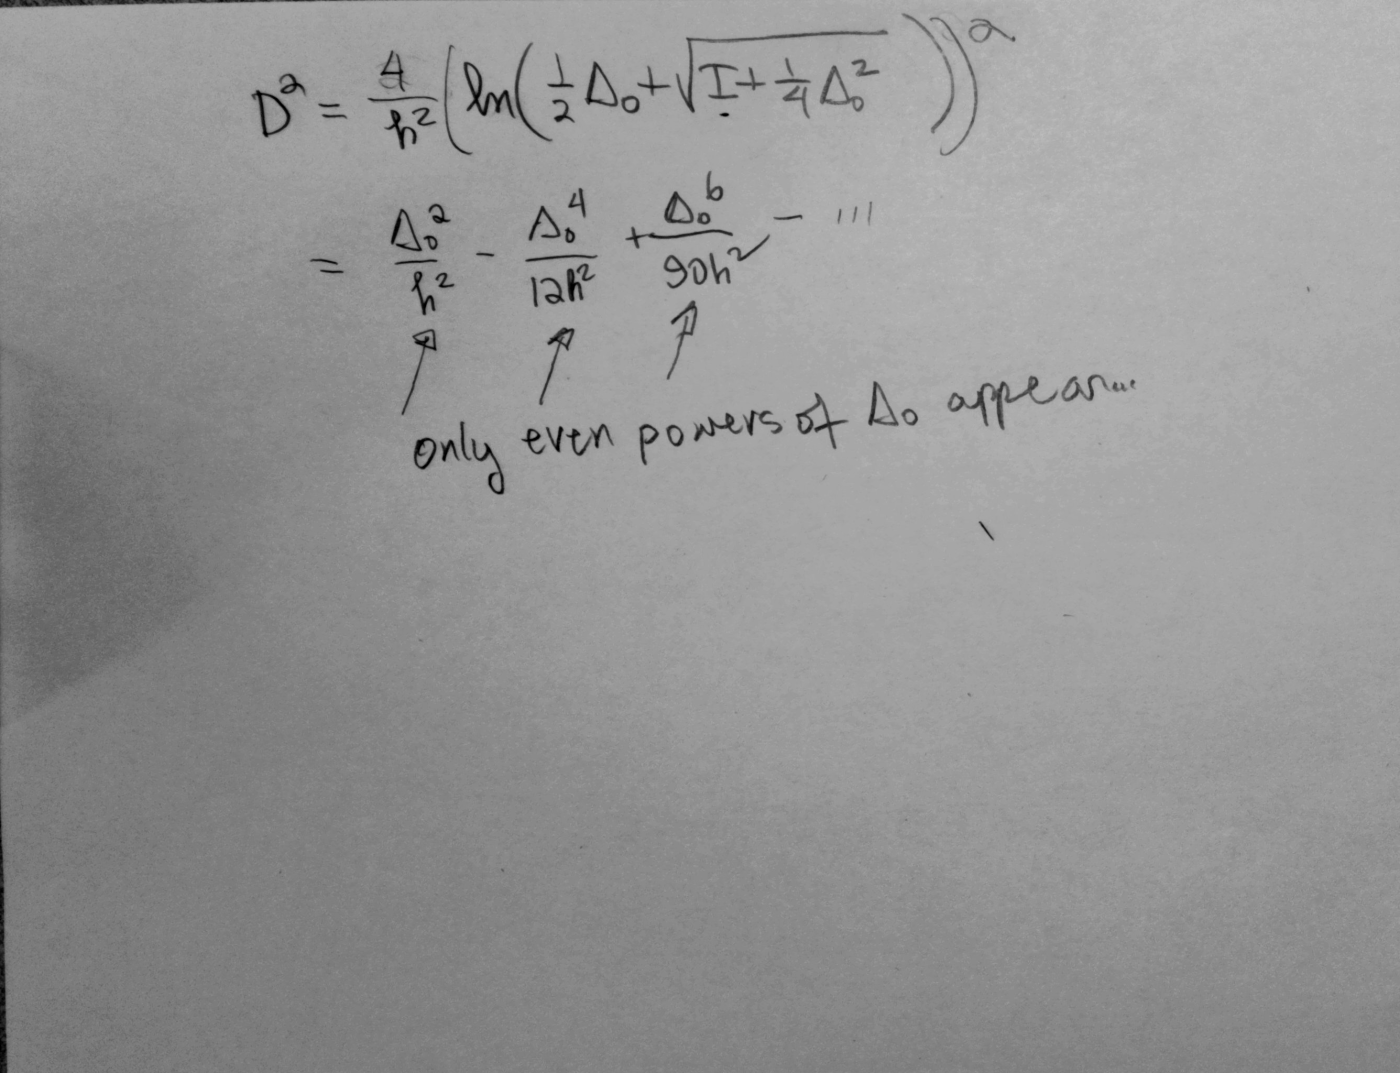 D² = 4/h² (ln(½Δ₀ + √(I + ¼Δ₀²)))²
= Δ₀²/h² - Δ₀⁴/12h² + Δ₀⁶/90h² - ...
only even powers of Δ₀ appear...